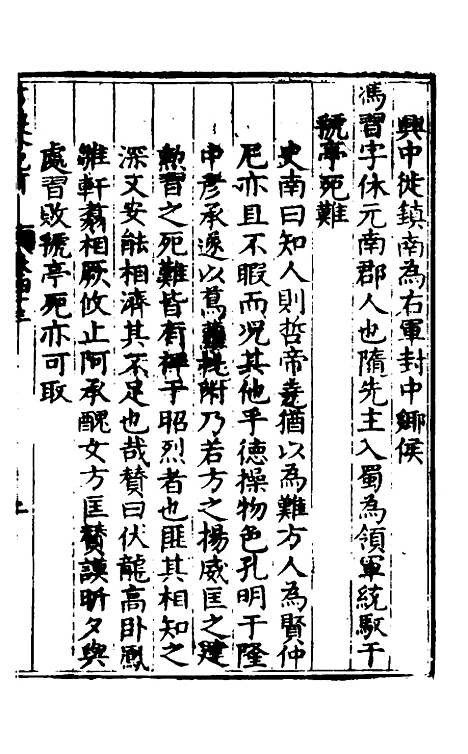 興中徙鎮南為右軍封中鄉侯
馮習字休元南郡人也隋先主入蜀為領軍統馭于
猇亭死難
史南曰知人則哲帝堯猶以為難方人為賢仲
尼亦且不暇而况其他乎德操物色孔明于隆
中彥承遂以蔦蘿托附乃若方之揚威匡之建
勲習之死難皆有裨于昭烈者也匪其相知之
深又安能相濟其不足也哉贊曰伏龍高卧鳳
雛軒翥相厥攸止阿承醜女方匡贊謨昕夕與
處習敗猇亭死亦可取